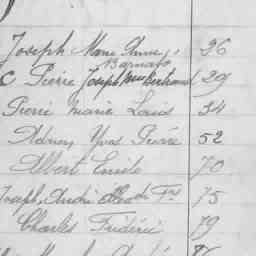 Joseph Marie 26
Bernard
C Pierre Joseph Bertrand 29
Pierre Marie Louis 34
Adrien Yves Pierre 52
Albert Emile 70
Joseph, André 75
Charles Frédéric 79